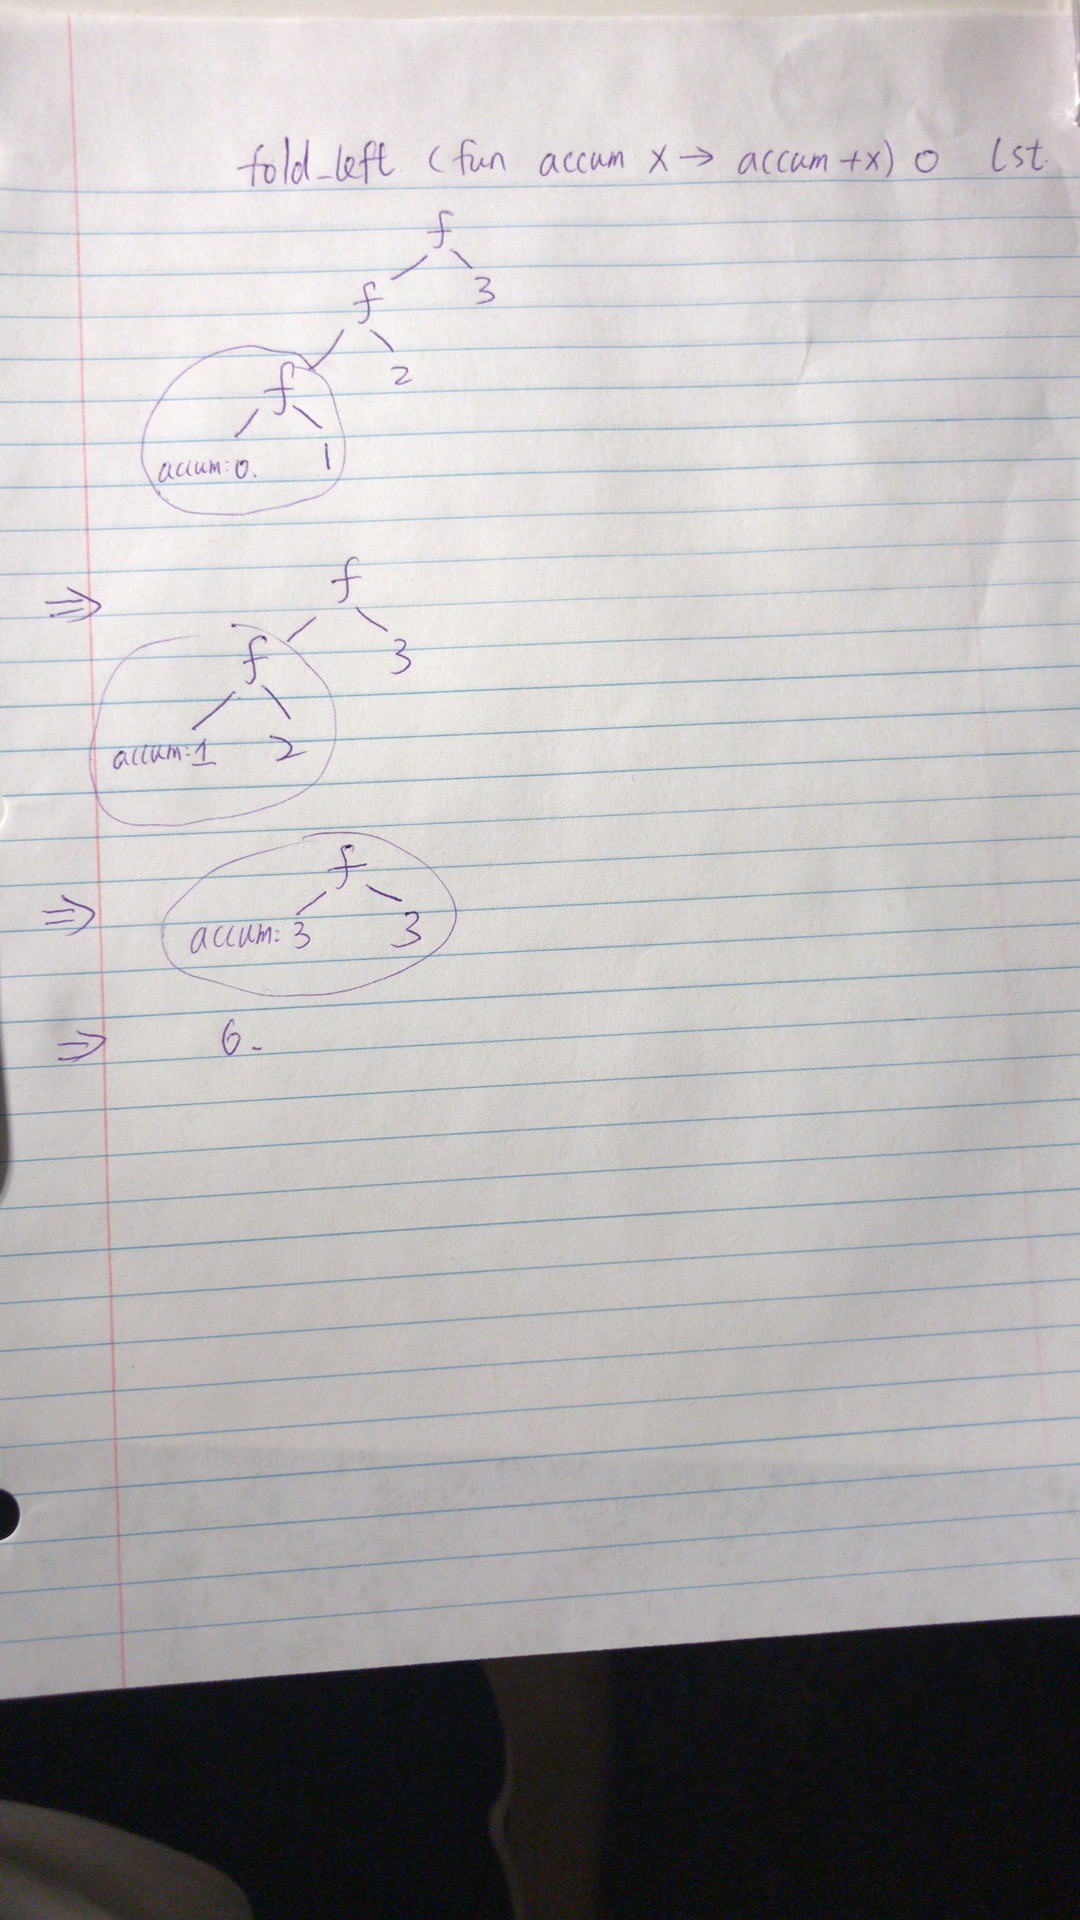 fold_left (fun accum x → accum + x) 0 lst
f
f 3
f 2
accum: 0. 1
⇒ f
f 3
accum: 1 2
⇒ f
accum: 3 3
⇒ 6.